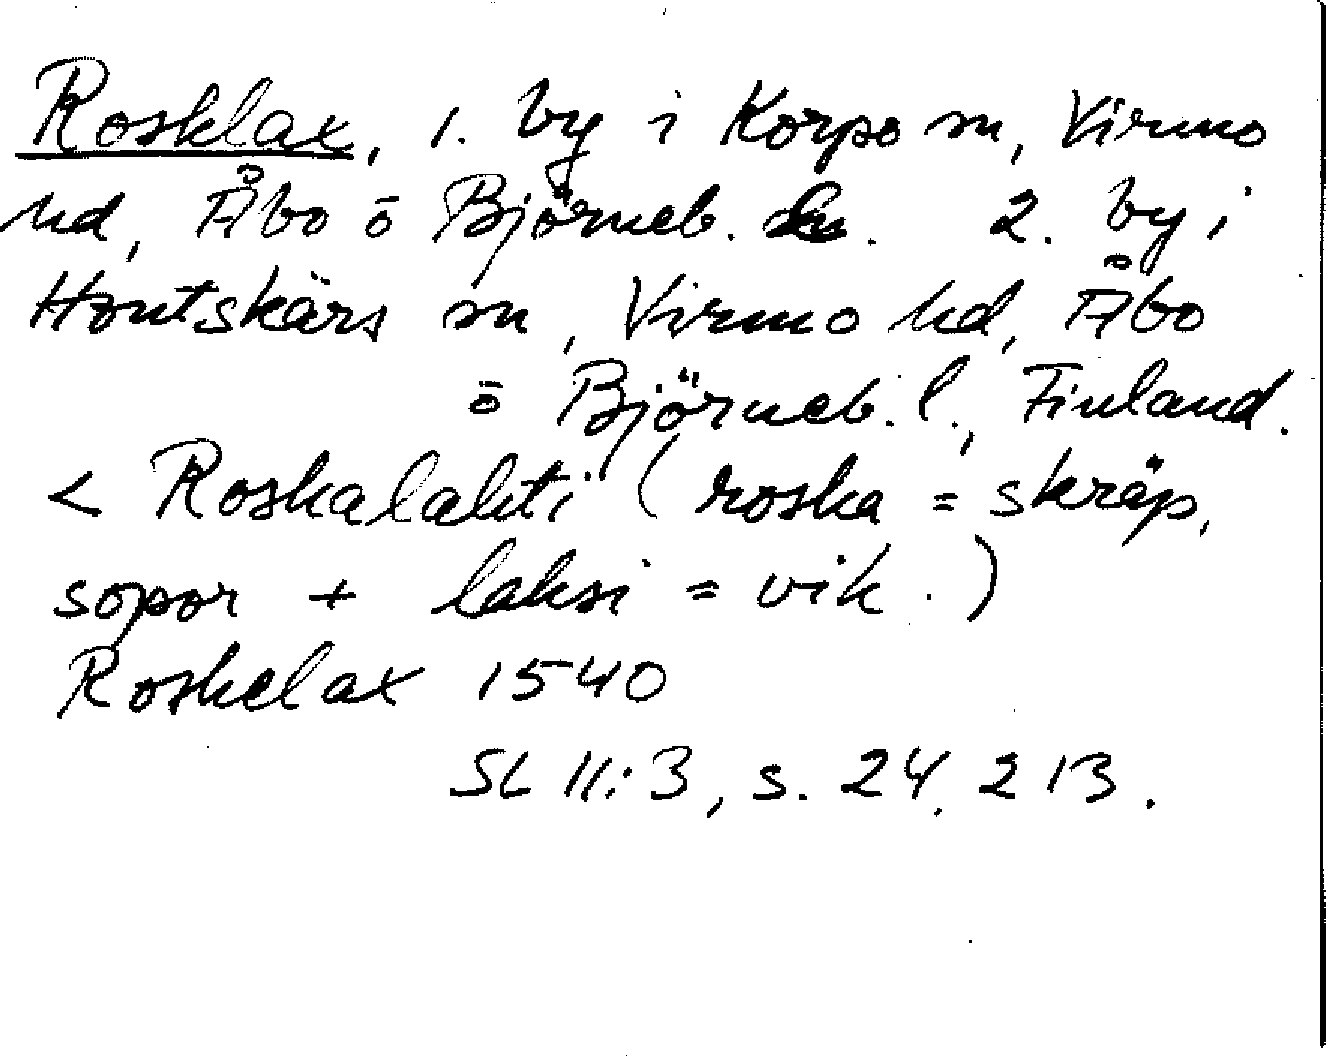 Rosklax, 1. by i Korpo sn, Virmo
hd, Åbo o Björneb. 2. by i
Houtskärs sn, Virmo hd, Åbo
o Björneb. l., Finland.
< Roskalahti (roska = skräp,
sopor + laksi = vik.)
Roskelax 1540
SL II:3, s. 24, 213.